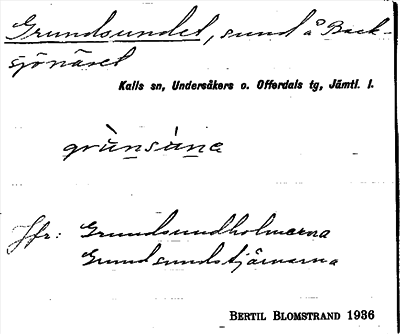 Grundsundet, sund å Back-
sjönäset
Kalls sn, Undersåkers o. Offerdals tg, Jämtl. l.
grùnsùnɛ
Jfr: Grundsundholmarna
Grundsundstjärnarna
BERTIL BLOMSTRAND 1936